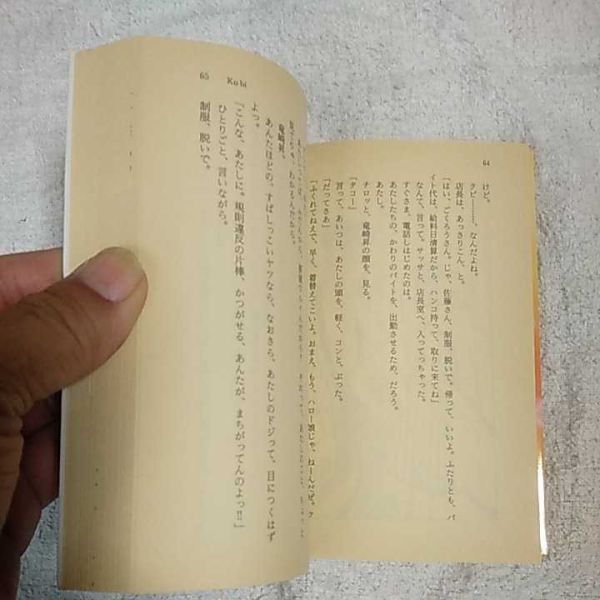 64
けど、
クビ――、なんだよね。
店長は、あっさりこん、と。
「はい、ごくろうさん。じゃ、佐藤さん、制服、脱いで。帰って、いいよ。ふたりとも、バ
イト代は、給料日清算だから、ハンコ持って、取りに来てね」
なんて、言って。サッサと、店長室へ、入ってっちゃった。
すぐさま、電話しはじめたのは。
あたしたちの、かわりのバイトを、出勤させるため、だろう。
あたし。
チロッと、竜崎昇の顔を、見る。
「タコー」
言って、あいつは、あたしの頭を、軽く、コンと、ぶった。
「だってさあ」
「ふくれてねえで、早く、着替えてこいよ。おまえ、もう、ハロー娘じゃ、ねーんだぜ。ク
65 Kubi
竜崎昇。
あんたほどの、すばしっこいヤツなら、なおさら、あたしのドジって、目につくはず
よっ。
「こんな、あたしに。規則違反の片棒、かつがせる、あんたが、まちがってんのよっ!!」
ひとりごと、言いながら。
制服、脱いで。